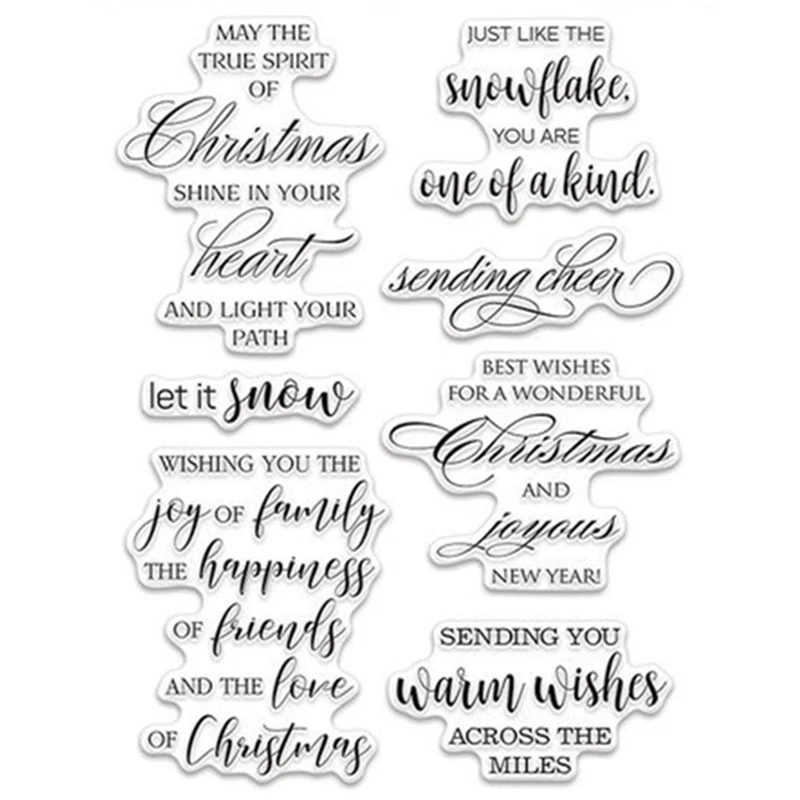 MAY THE
TRUE SPIRIT
OF
Christmas
SHINE IN YOUR
heart
AND LIGHT YOUR
PATH
let it snow
WISHING YOU THE
joy OF family
THE happiness
OF friends
AND THE love
OF Christmas
JUST LIKE THE
snowflake,
YOU ARE
one of a kind.
sending cheer
BEST WISHES
FOR A WONDERFUL
Christmas
AND
joyous
NEW YEAR!
SENDING YOU
warm wishes
ACROSS THE
MILES